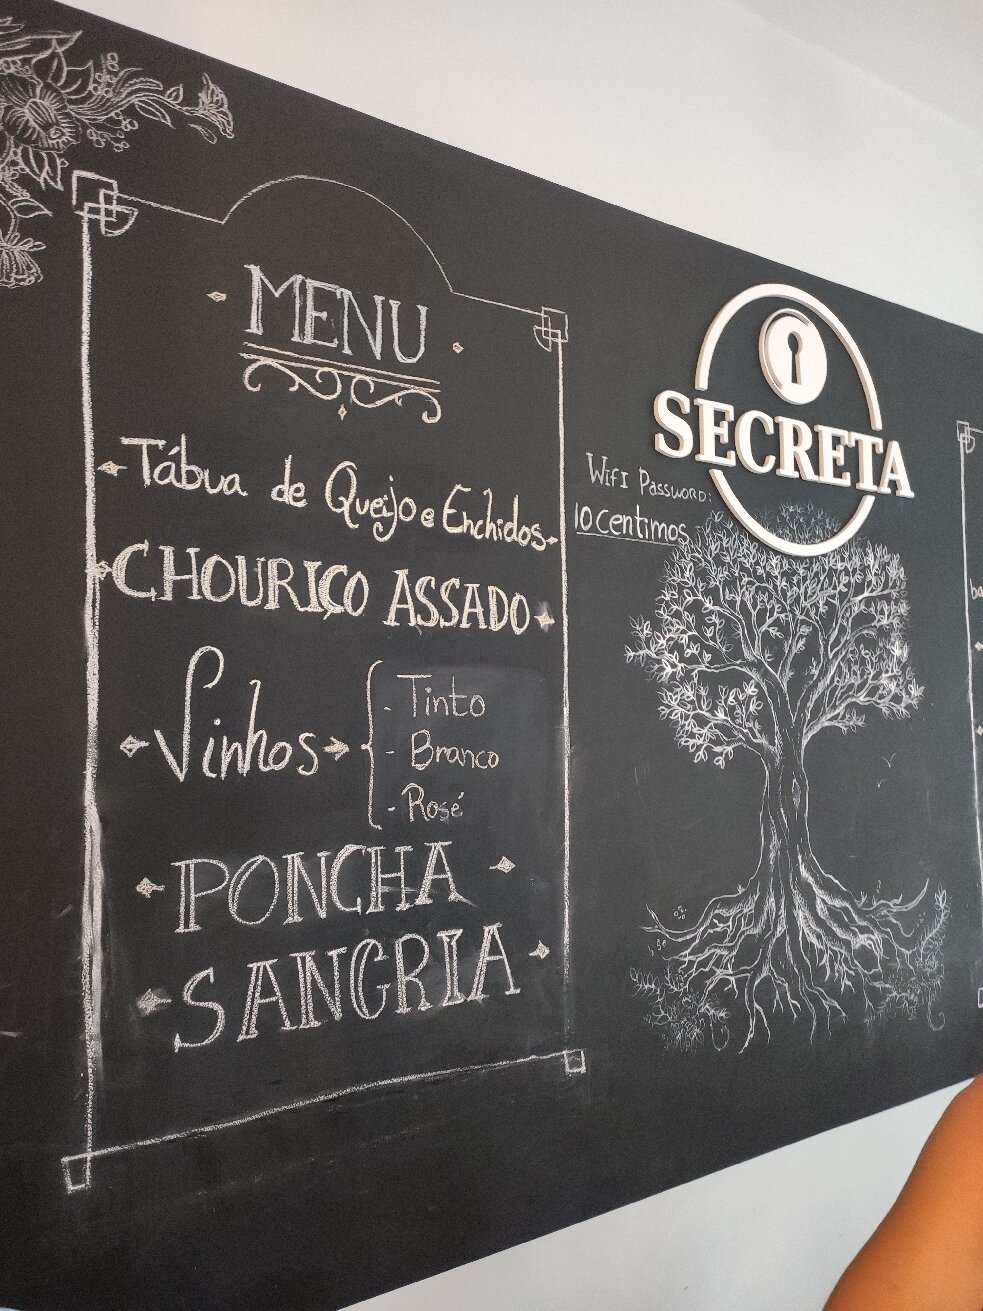 MENU
Tábua de Queijo e Enchidos
CHOURIÇO ASSADO
Vinhos
- Tinto
- Branco
- Rosé
PONCHA
SANGRIA
SECRETA
WIFI PASSWORD:
10centimos